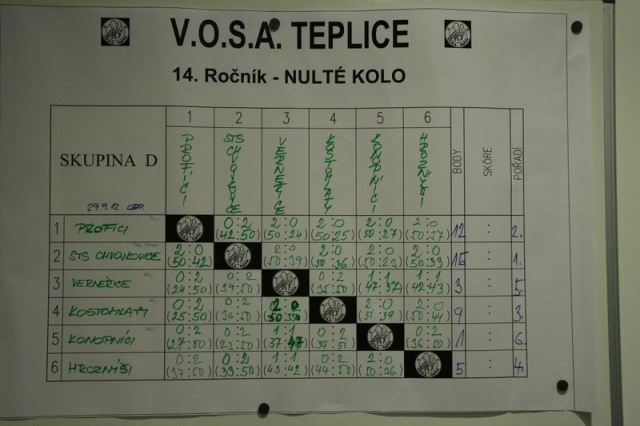 V.O.S.A. TEPLICE
14. Ročník - NULTÉ KOLO
1 2 3 4 5 6
SKUPINA D PROFÍCI VERNEŘICE KOSTOMLATY KONOPNÍCI HROZNÝŠI BODY SKÓRE: POŘADÍ
29.9.12
1 PROFÍCI 0:2 2:0 2:0 2:0 2:0 12 : 2.
(42:50) (50:24) (50:25) (50:27) (50:37)
2 STS CHVOJKOVICE 2:0 2:0 2:0 2:0 2:0 15 : 1.
(50:42) (50:39) (50:36) (50:33)
3 VERNEŘICE 0:2 0:2 0:2 1:1 1:1 3 : 5.
(24:50) (39:50) (47:37) (42:43)
4 KOSTOMLATY 0:2 0:2 2:0 2:0 2:0 9 : 3.
(25:50) (36:50) (50:44)
5 KONOPNÍCI 0:2 0:2 1:1 0:2 0:2 1 : 6.
(27:50) (37:47) (36:50)
6 HROZNÝŠI 0:2 0:2 1:1 0:2 2:0 5 : 4.
(37:50) (33:50) (43:42) (44:50) (50:36)